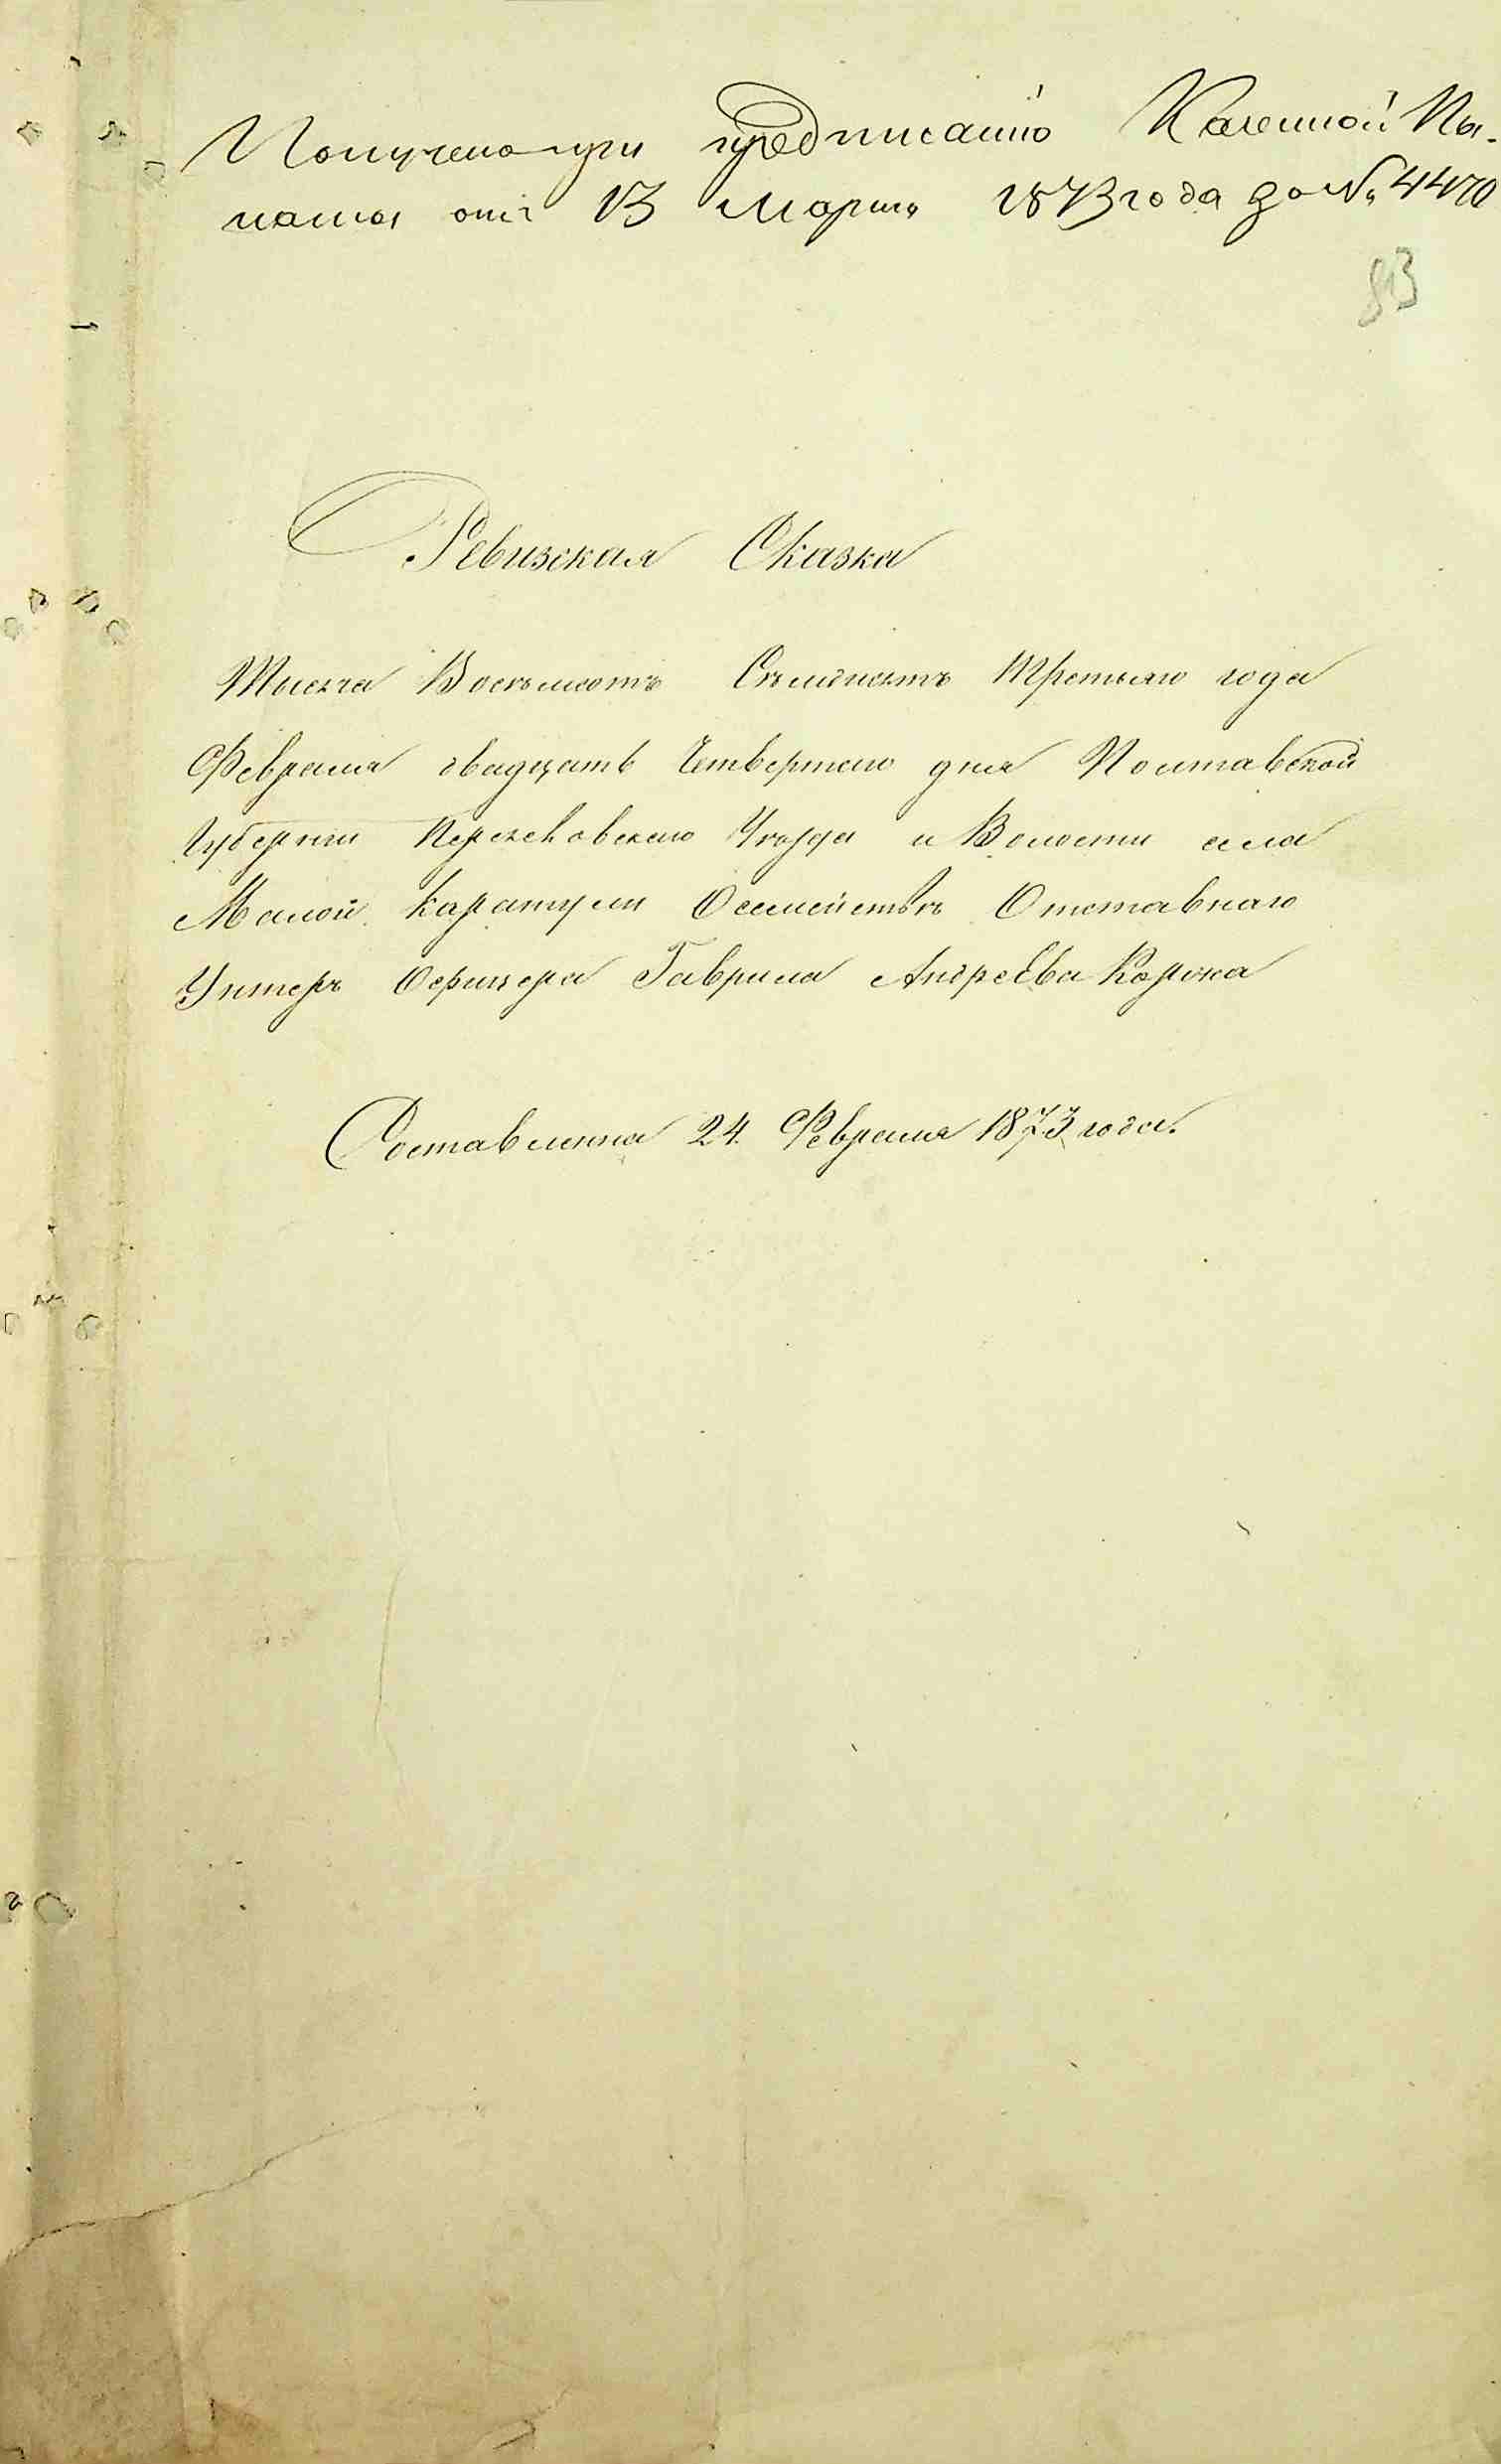 Получено при предписанію Казенной Па-
латы отъ 13 Марта 1873 года за № 4470
83
Ревизская Сказка
Тысяча Восемьсотъ Семьдисятъ Третьяго года
Февраля двадцать Четвертаго дня Полтавской
Губерніи Переяславского Уезда и Волости села
Малой Каратули О семействѣ Отставнаго
Унтеръ Офицера Гаврила Андреева
Составленна 24 Февраля 1873 года.